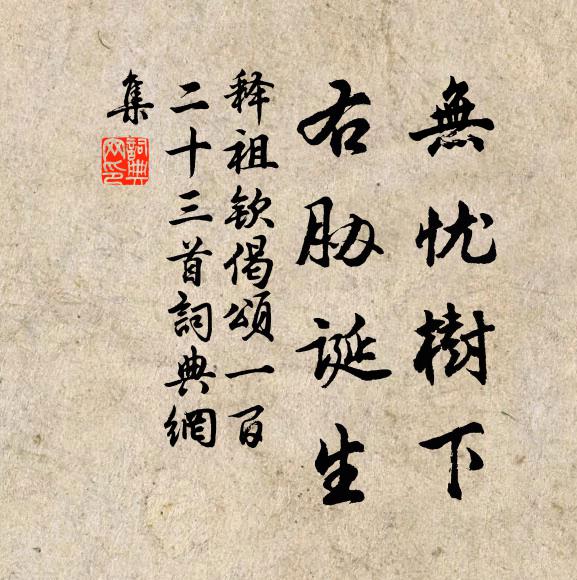 無忧樹下
右胁誕生
释祖钦偈頌一百
二十三首詞典網
集
詞典
网印